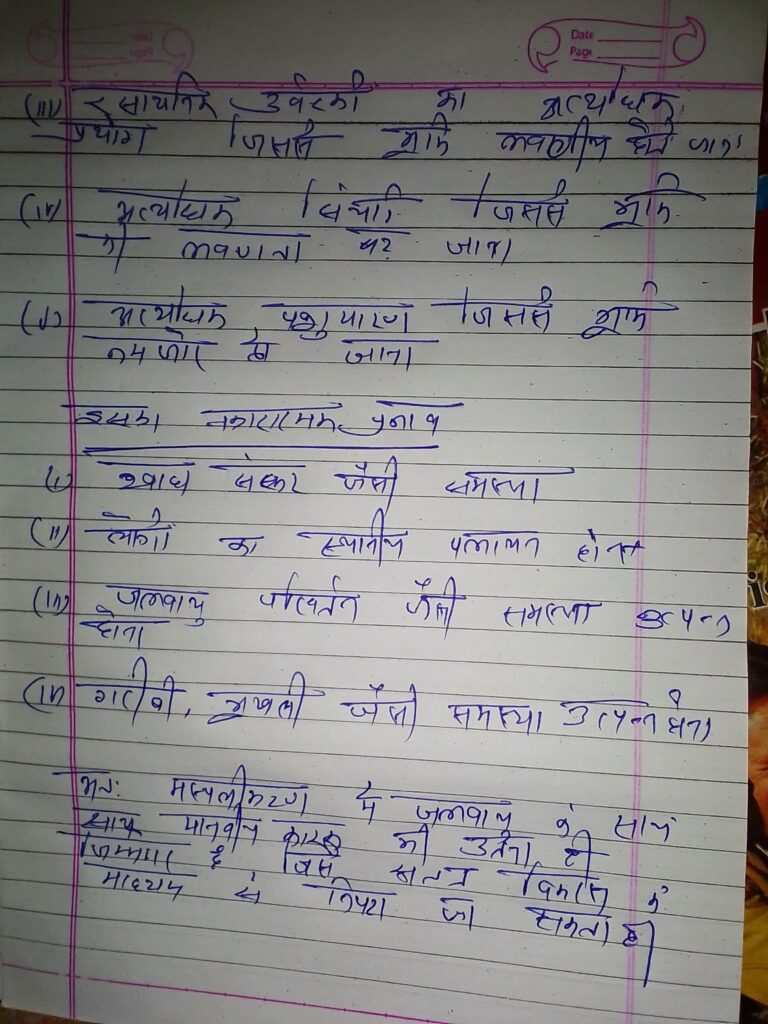 Date
Page
(iii) रसायनिक उर्वरकों का अत्याधिक
प्रयोग जिससे भूमि लवणीय होते जाना
(iv) अत्याधिक सिंचाई जिससे भूमि
की लवणता बढ़ जाना
(v) अत्याधिक पशुचारण जिससे भूमि
कमजोर हो जाना
इसका नकारात्मक प्रभाव
(i) खाद्य संकट जैसी समस्या
(ii) लोगों का स्थानीय पलायन होना
(iii) जलवायु परिवर्तन जैसी समस्या उत्पन्न
होना
(iv) गरीबी, भुखमरी जैसी समस्या उत्पन्न होना
अतः मरुस्थलीकरण में जलवायु के साथ
साथ मानवीय कारक भी उतना ही
जिम्मेदार है जिसे सतत विकास के
माध्यम से निपटा जा सकता है।